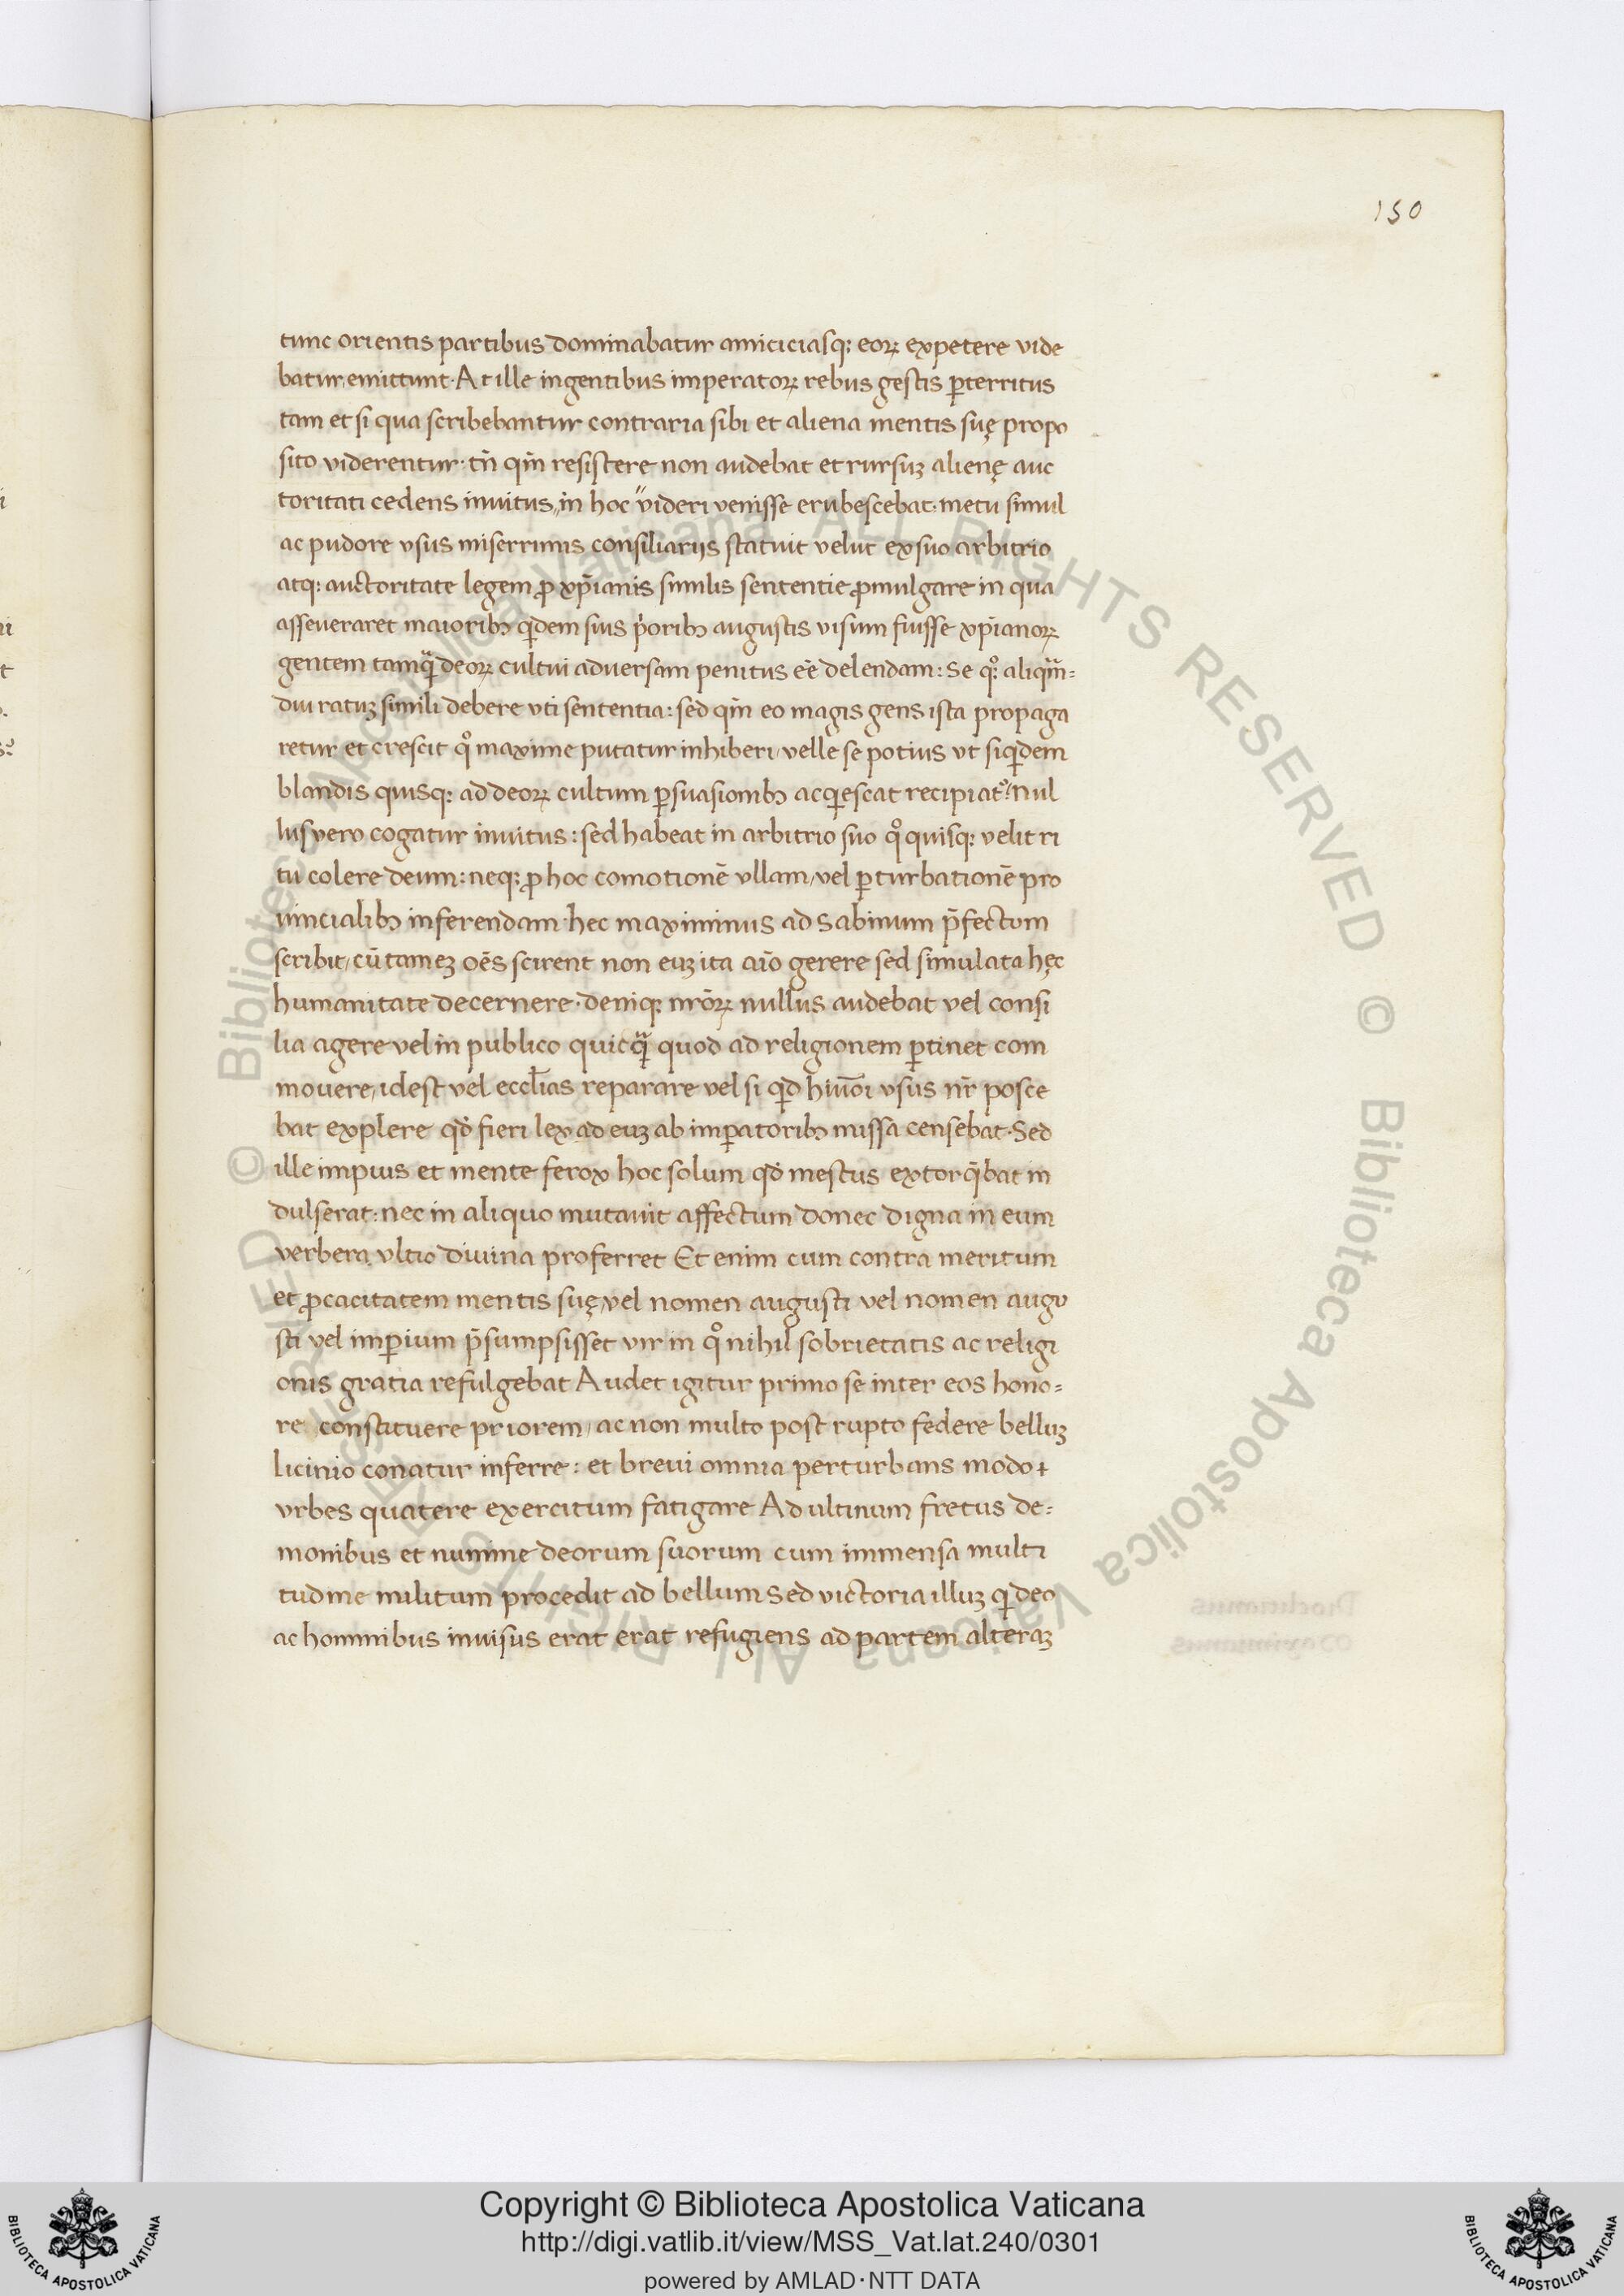 150
tunc orientis partibus dominabatur amiciciasq; eoꝝ expetere vide
batur emittunt. At ille ingentibus imperatoꝝ rebus gestis ꝑterritus
tam et si qua scribebantur contraria sibi et aliena mentis suę propo
sito viderentur. tñ qm̄ resistere non audebat et rursuꝫ alienę auc
toritati cedens invitus in hoc videri venisse erubescebat. metu simul
ac pudore vsus miserrimis consiliarijs statuit velut ex suo arbitrio
atq; auctoritate legem ꝓ xp̄ianis similis sententie ꝓmulgare in qua
asseveraret maioribꝫ qͥdem suis pͥoribꝫ augustis visum fuisse xp̄ianoꝝ
gentem tamqͣ̄ deoꝝ cultui adversam penitus eē delendam: Se qͦꝫ aliqͣm̄=
diu ratuꝫ simili debere vti sententia: sed qm̄ eo magis gens ista propaga
retur et crescit qͦ maxime putatur inhiberi, velle se potius vt siqͥdem
blandis quisq; ad deoꝝ cultum ꝑsuasionibꝫ acqͥescat recipiatᷣ: Nul
lus vero cogatur invitus: sed habeat in arbitrio suo qͦ quisq; velit ri
tu colere deum: neq; ꝓ hoc comotionē vllam, vel ꝑturbationē pro
vincialibꝫ inferendam. hec maximinus ad Sabinum p̄fectum
scribit, cū tameꝫ oēs scirent non euꝫ ita aīo gerere sed simulata hęc
humanitate decernere. deniq; nr̄oꝝ nullus audebat vel consi
lia agere vel in publico quicqͣ̄ quod ad religionem ꝑtinet com
movere, idest vel eccl̄ias reparare vel si qͥd hīuōi vsus nr̄ posce
bat explere qd̓ fieri lex ad euꝫ ab imꝑatoribꝫ missa censebat. Sed
ille impius et mente ferox hoc solum qd̓ mestus extorq̄bat in
dulserat: nec in aliquo mutavit affectum donec digna in eum
verbera vltio divina proferret Et enim cum contra meritum
et ꝓcacitatem mentis suę, vel nomen augusti vel nomen augu
sti vel imꝑium p̄sumpsisset vir in qͦ nihil sobrietatis ac religi
onis gratia refulgebat Audet igitur primo se inter eos hono=
re constituere priorem, ac non multo post rupto federe belluꝫ
licinio conatur inferre: et brevi omnia perturbans modo
vrbes quatere exercitum fatigare Ad ultimum fretus de=
monibus et numine deorum suorum cum immensa multi
tudine militum procedit ad bellum Sed victoria illuꝫ qͥ deo
ac hominibus invisus erat erat refugiens ad partem alteraꝫ
Copyright © Biblioteca Apostolica Vaticana
http://digi.vatlib.it/view/MSS_Vat.lat.240/0301
powered by AMLAD·NTT DATA